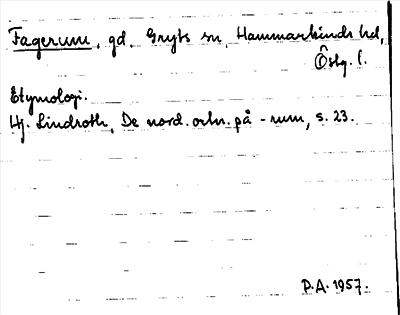 Fagerum, gd, Gryts sn, Hammarkinds hd,
Östg. l.
Etymologi.
Hj. Lindroth, De nord. ortn. på -rum, s. 23.
P.A. 1957.